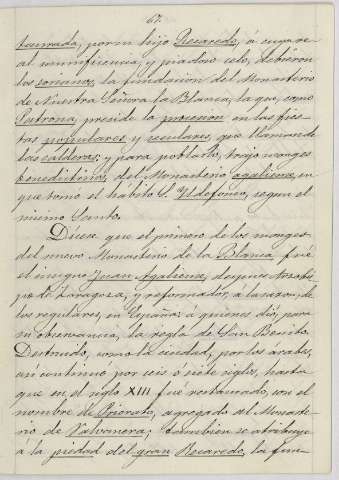 67.
taurada, por su hijo Recaredo, á cuya re-
al munificencia, y piadoso celo, debieron
los sorianos, la fundacion del Monasterio
de Nuestra Señora la Blanca, la que, como
Patrona, preside la procesion en las fies-
tas populares y seculares, que llaman de
las calderas; y para poblarlo, trajo monges
benedictinos, del Monasterio agaliense, en
que tomo el hábito S. Yldefonso, segun el
mismo Santo.
Dicese que el primero de los monges
del nuevo Monasterio de la Blanca, fué
el insigne Juan Agaliense, despues Arzobis-
po de Zaragoza, y reformador, á la sazon, de
los regulares, en España: a quienes dió, para
su observancia, la regla de San Benito.
Destruido, como la ciudad, por los arabes,
asi continuo por seis ó siete siglos, hasta
que en el siglo XIII fué restaurado, con el
nombre de Priorato, agregado al Monaste-
rio de Valvanera; tambien se atribuye
á la piedad del gran Recaredo, la fun-